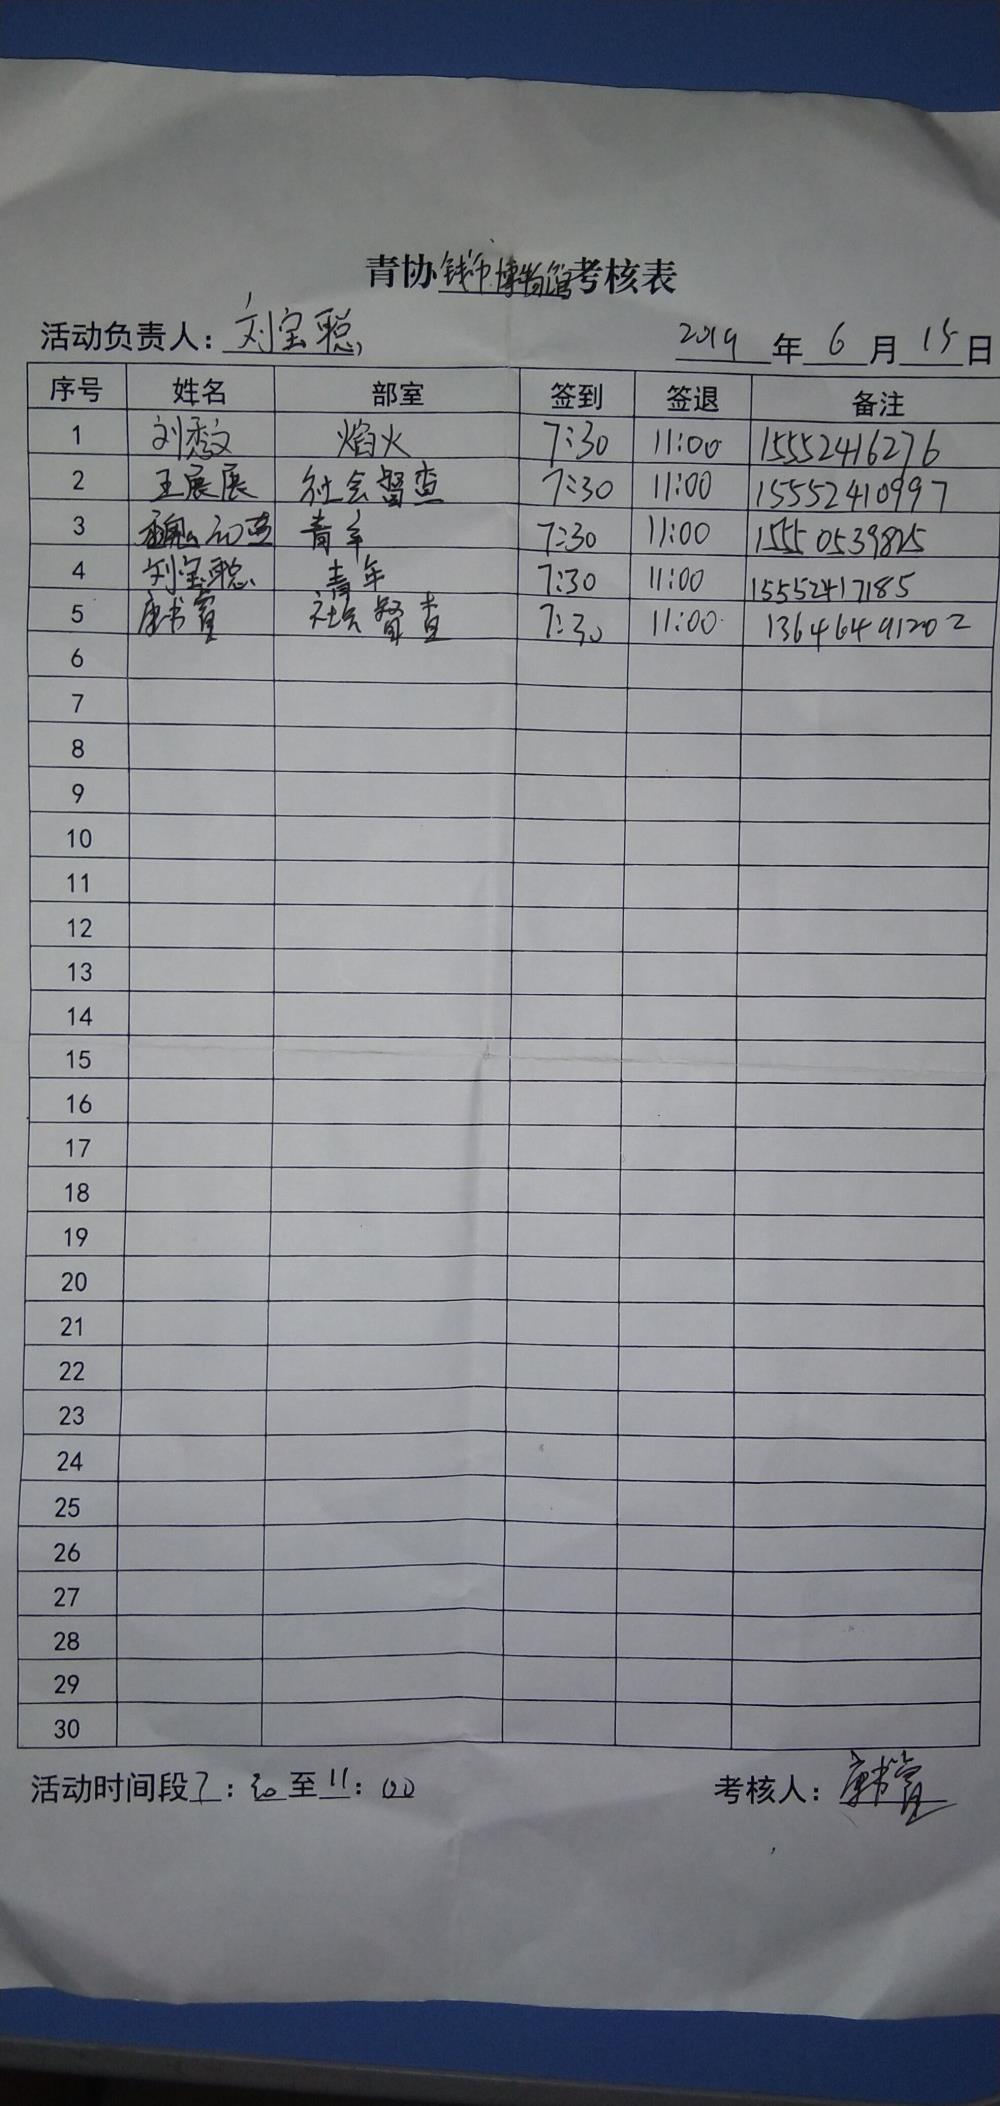 青协钱币博物馆考核表
活动负责人：刘宝聪 2019年6月15日
序号 姓名 部室 签到 签退 备注
1 刘秀文 焰火 7:30 11:00 15552416276
2 王展展 社会督查 7:30 11:00 15552410997
3 魏 青年 7:30 11:00 15550539825
4 刘宝聪 青年 7:30 11:00 15552417185
5 康书 社会督查 7:30 11:00 13646491202
6
7
8
9
10
11
12
13
14
15
16
17
18
19
20
21
22
23
24
25
26
27
28
29
30
活动时间段7：30至11：00 考核人：康书